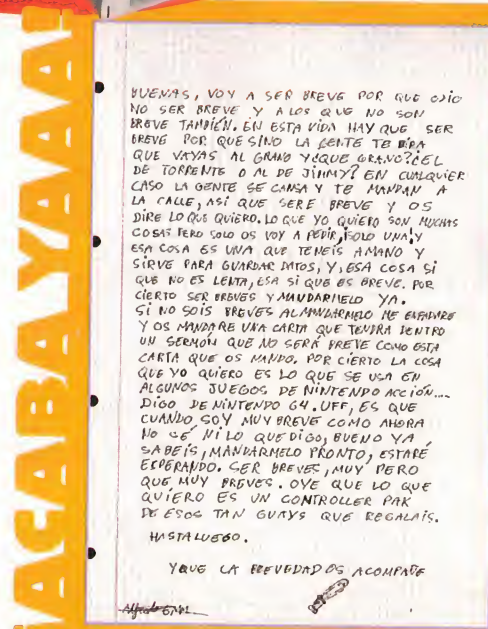 ¡ACABAYYAAA!
BUENAS, VOY A SER BREVE POR QUE ODIO
NO SER BREVE Y A LOS QUE NO SON
BREVE TAMBIÉN. EN ESTA VIDA HAY QUE SER
BREVE POR QUE SINO LA GENTE TE DIRA
QUE VAYAS AL GRANO Y ¿QUE GRANO? ¿EL
DE TORRENTE O AL DE JIMMY? EN CUALQUIER
CASO LA GENTE SE CANSA Y TE MANDAN A
LA CALLE, ASI QUE SERE BREVE Y OS
DIRE LO QUE QUIERO. LO QUE YO QUIERO SON MUCHAS
COSAS PERO SOLO OS VOY A PEDIR, ¡SOLO UNA! Y
ESA COSA ES UNA QUE TENEIS AMANO Y
SIRVE PARA GUARDAR DATOS, Y, ESA COSA SI
QUE NO ES LENTA, ESA SI QUE ES BREVE. POR
CIERTO SER BREVES Y MANDARMELO YA.
SI NO SOIS BREVES AL MANDARMELO ME ENFADARE
Y OS MANDARE UNA CARTA QUE TENDRA DENTRO
UN SERMÓN QUE NO SERÁ BREVE COMO ESTA
CARTA QUE OS MANDO. POR CIERTO LA COSA
QUE YO QUIERO ES LO QUE SE USA EN
ALGUNOS JUEGOS DE NINTENDO ACCIÓN....
DIGO DE NINTENDO 64. UFF, ES QUE
CUANDO SOY MUY BREVE COMO AHORA
NO SÉ NI LO QUE DIGO, BUENO YA
SABEIS, MANDÁRMELO PRONTO, ESTARÉ
ESPERANDO. SER BREVES, MUY PERO
QUE MUY BREVES. OYE QUE LO QUE
QUIERO ES UN CONTROLLER PAK
DE ESOS TAN GUAYS QUE REGALAIS.
HASTA LUEGO.
Y QUE LA BREVEDAD OS ACOMPAÑE
Alfredo